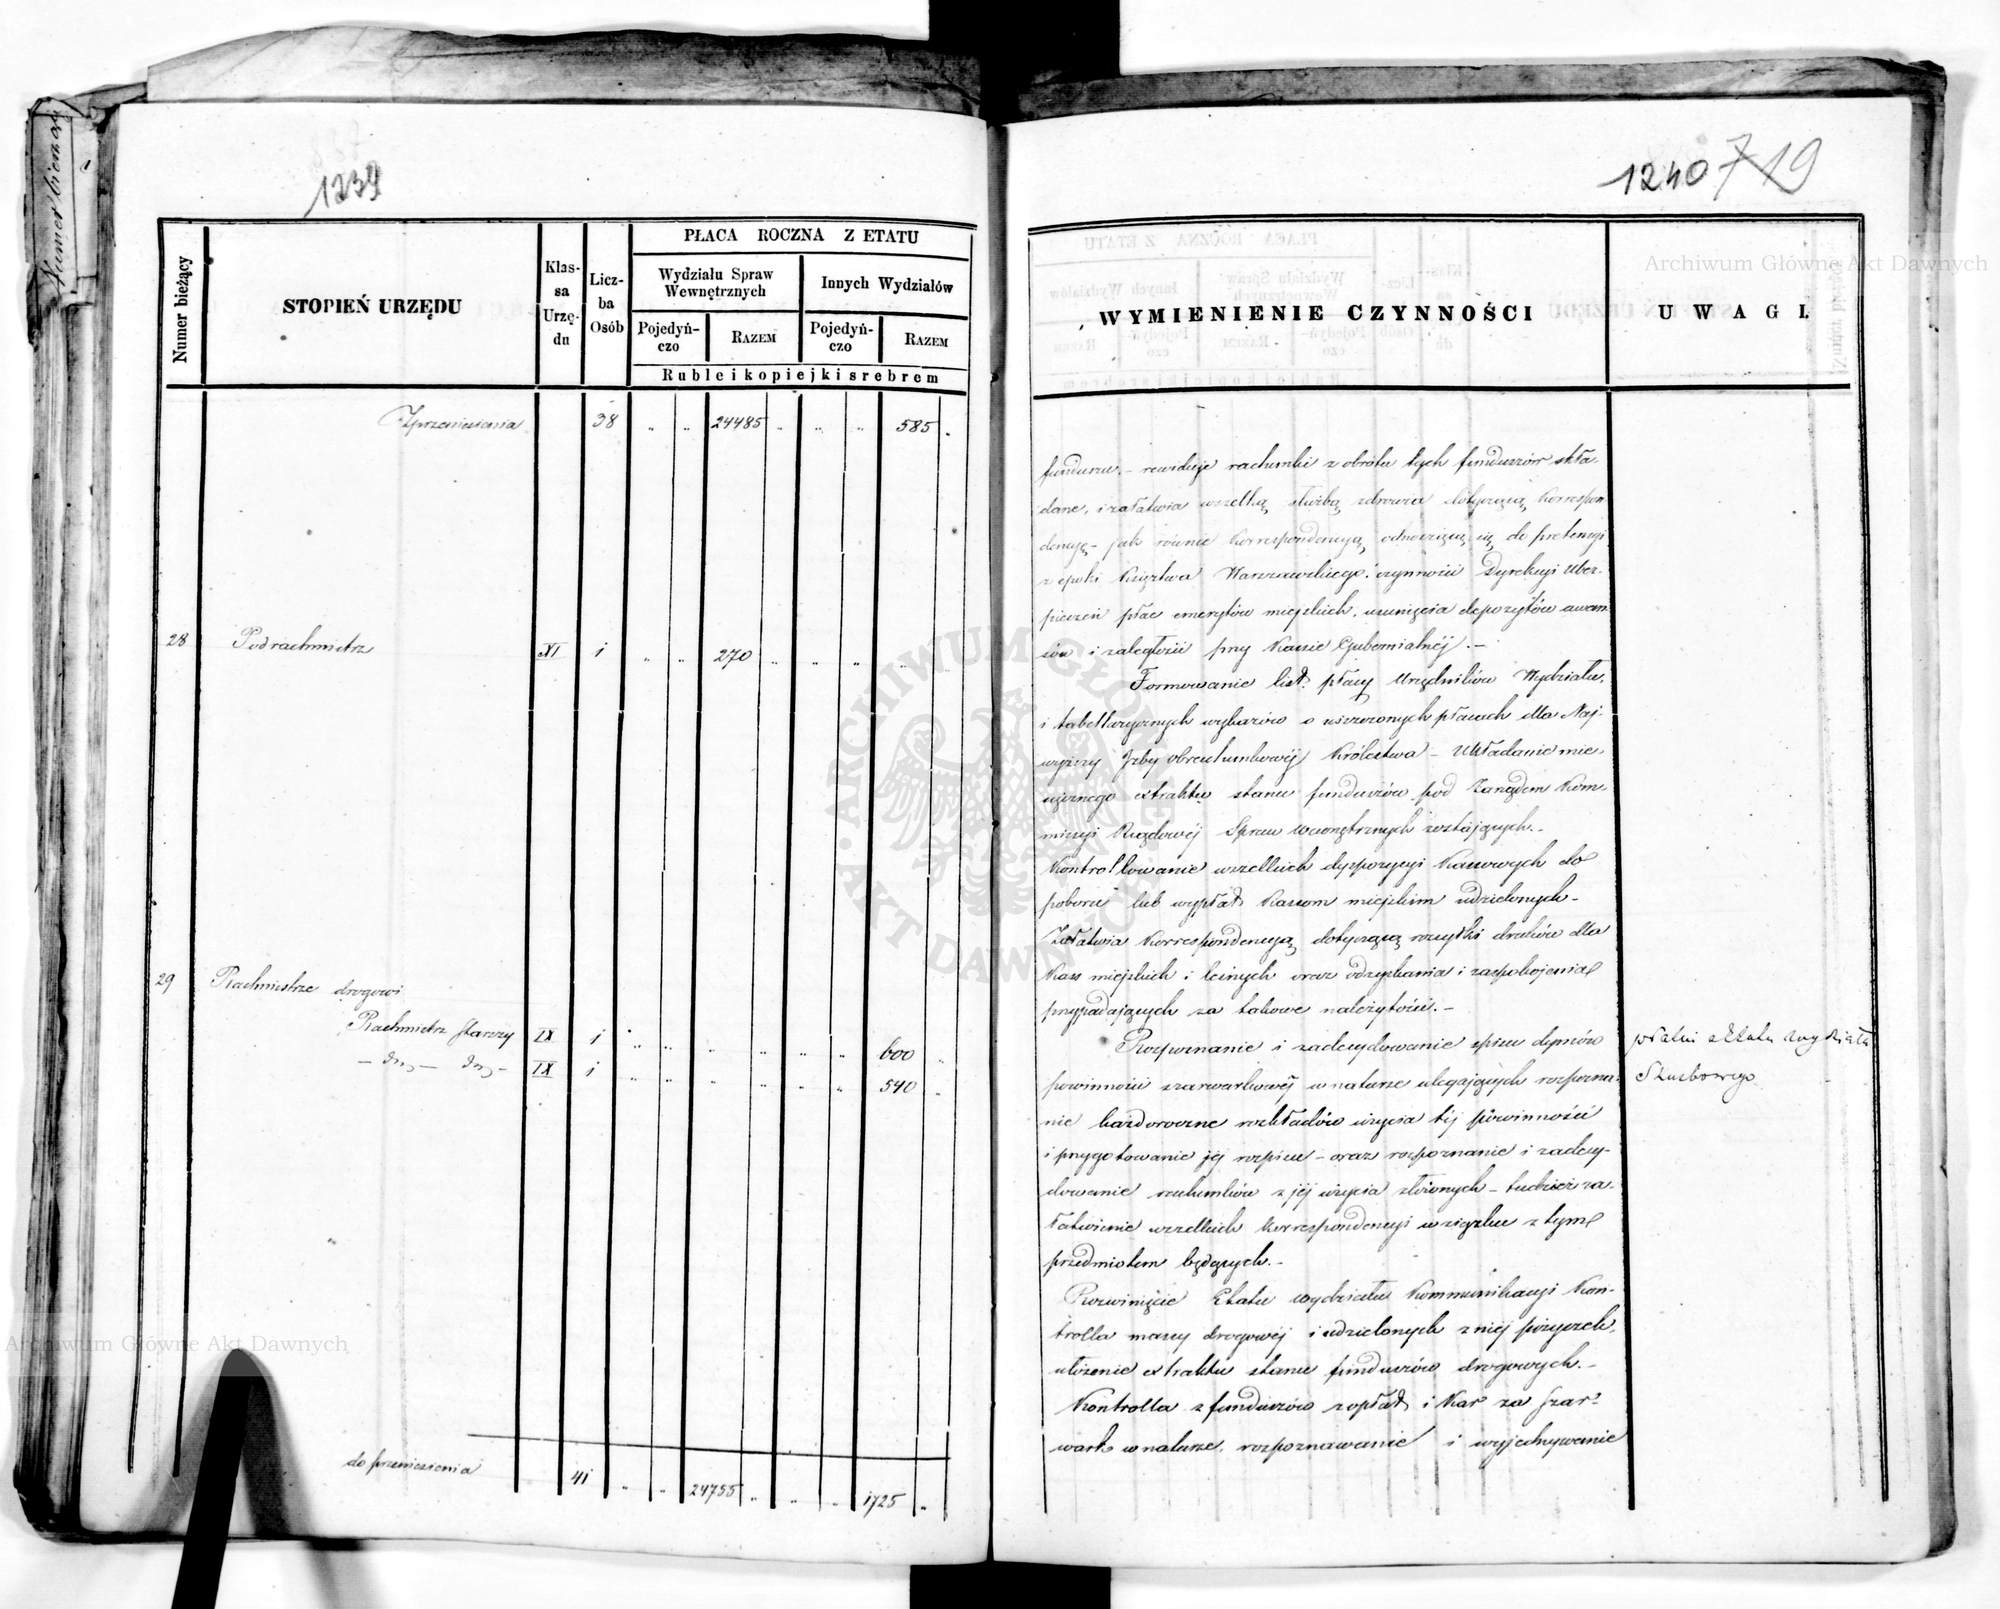 Numer bieżący
1239
Numer bieżący
STOPIEŃ URZĘDU
Klas-
sa
Urzę-
du
Licz-
ba
Osób
PŁACA ROCZNA Z ETATU
Wydziału Spraw
Wewnętrznych
Innych Wydziałów
Pojedyń-
czo
RAZEM
Pojedyń-
czo
RAZEM
Ruble i kopiejki srebrem
Zprzeniesienia 38 " " 24485 " " " 585 "
28 Podrachmistrz XI 1 " " 270 " " " " "
29 Rachmistrze drogowi
Rachmistrz starszy IX 1 " " " " " " 600 "
– dto – dto – IX 1 " " " " " " 540 "
do przeniesienia 41 " " 24755 " " " 1725 "
1240 719
WYMIENIENIE CZYNNOŚCI
UWAGI.
funduszu. – rewiduje rachunki z obrotu tych funduszów skła-
dane, i załatwia wszelką służbą zdrowia dotyczącą korrespon
dencyę – jak równie korrespondencyą odnoszącą się do pretensyi
z epoki Księztwa Warszawskiego, czynności Dyrekcyi Ubez-
pieczeń płac emerytów miejskich, usunięcia depozytów awan
sów i zaległości przy Kassie Gubernialnéj. –
Formowanie list płacy Urzędników Wydziału,
i tabellarycznych wykazów o uiszczonych płacach dla Naj-
wyższy Izby obrachunkowéj Królestwa – Układanie mie-
sięcznego extraktu stanu funduszów pod Zarządem Kom-
missyi Rządowéj Spraw Wewnętrznych zostających. –
Kontrollowanie wszelkich dyspozycyi Kassowych do
poboru lub wypłat Kassom miejskim udzielonych –
Załatwia Korrespondencyą dotyczącą rozsyłki druków dla
Kass miejskich i leśnych oraz odzyskania i zaspokojenia
przypadających za takowe należytości. –
Rozpoznanie i zadecydowanie spisu dymów
powinności szarwarkowéj w naturze ulegających rozpozna-
nie każdoroczne rozkładów użycia téj powinności
i przygotowanie jéj rozpisu – oraz rozpoznanie i zadecy-
dowanie rachunków z jéj użycia złożonych – tudzież za-
łatwienie wszelkich korrespondencyi w związku z tym
przedmiotem będących. –
Rozwinięcie Etatu wydziału Kommunikacyi Kon-
trolla massy drogowéj i udzielonych z niéj pożyczek,
ułożenie extraktu stanu funduszów drogowych. –
Kontrolla z funduszów z opłat i kar za szar-
wark w naturze, rozpoznawanie i wyjednywanie
płatni z Etatu Wydziału
Skarbowego
Archiwum Główne Akt Dawnych
Archiwum Główne Akt Dawnych
ARCHIWUM GŁÓWNE AKT DAWNYCH